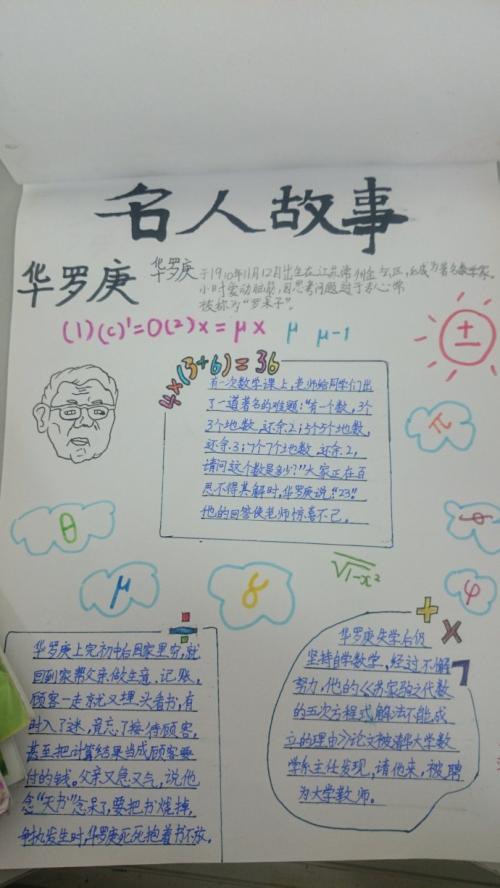 名人故事
华罗庚
华罗庚于1910年11月12日出生在江苏常州金坛区,后成为著名数学家。
小时爱动脑筋,因思考问题过于专心常
被称为“罗呆子”。
(1)(c)'=0(2)x=μx μ μ-1
4×(3+6)=36
有一次数学课上,老师给同学们出
了一道著名的难题:“有一个数,3个
3个地数,还余2;5个5个地数,
还余3;7个7个地数,还余2,
请问这个数是多少?”大家正在百
思不得其解时,华罗庚说:“23!”
他的回答使老师惊喜不已。
±
π
θ
μ
8
√1-x²
θ
φ
÷
华罗庚上完初中后因家里穷,就
回到家帮父亲做生意、记账,
顾客一走就又埋头看书,有
时入了迷,竟忘了接待顾客,
甚至把计算结果当成顾客要
付的钱。父亲又急又气,说他
念“天书”念呆了,要把书烧掉,
争执发生时,华罗庚死死抱着书不放。
+
×
华罗庚失学后仍
坚持自学数学,经过不懈
努力,他的《苏家驹之代数
的五次方程式解法不能成
立的理由》论文被清华大学数
学系主任发现,请他来,被聘
为大学教师。